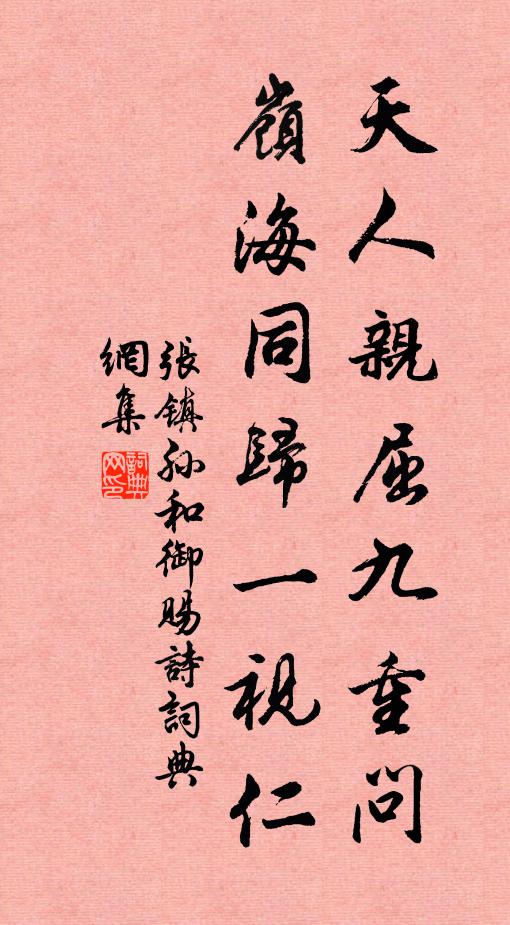 天人親屈九重問
嶺海同歸一視仁
張鎮孫和御賜詩詞典
網集
詞典网印